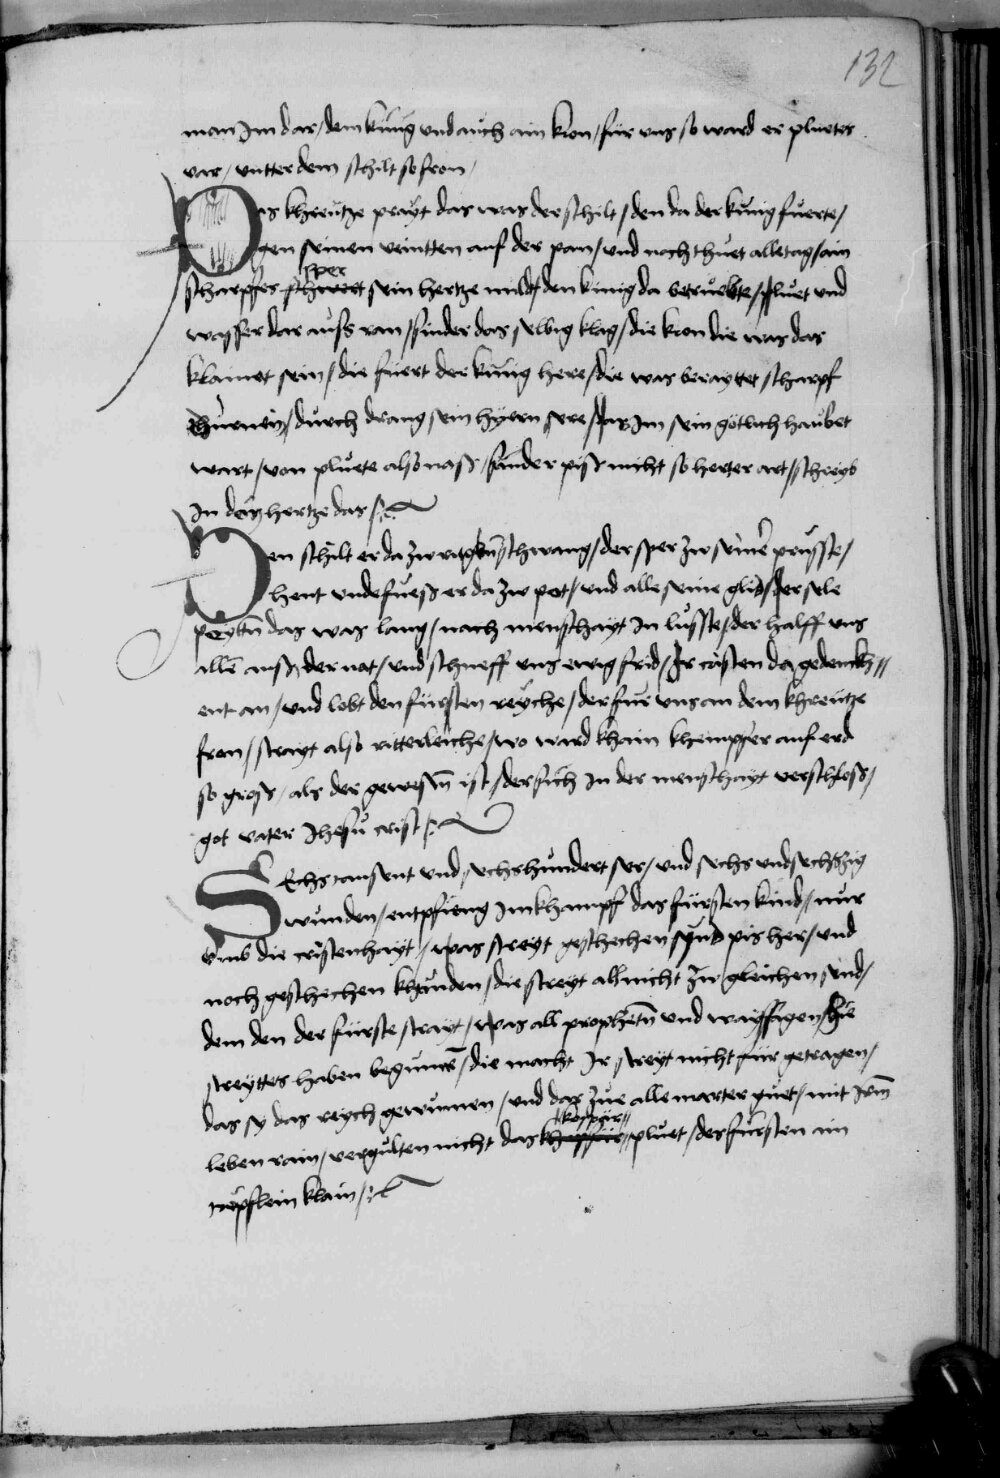 132
man Im dar / dem künig und auch ain kron / für uns so ward er pluetes
var / untter dem schilt so fron /
Das khreütze prayt das was der schilt / den da der künig fuerte /
gen seinen veintten auf der pan / und noch thuet alle tag / ain
scharpfes schwert sper sein hertze mildt / den künig da beruerte / pluet und
wasser dar auss ran / sünder das selbig klag / die kron die was das
klainet sein / die fuert der künig here / die was berayttet scharpf
thürnein / durch drang sein hyern sere / das Im sein götlich haubet
wart / von pluete also nass / sünder piss nicht so herter art / schreyb
In dein hertze das /
Den schilt er da zw rugkn schwang / der sper zw seiner prusste /
hent unde fuess er da zw pot / und alle seine glid / der sele
peyttn das was lang / nach menschayt In lusste / der halff uns
allen auss der not / und schueff uns ewig frid / Ir cristen da gedenckh
ent an / und lobt den fürsten reyche / der für uns an dem khreütze
fron / strayt also ritterleiche / wo ward khain khempfer auf erd
so gross / als der gewesn ist / der sich In der menschayt verschloss /
got vater Ihesu crist /
SEchs tausent und sechshundert ser / und sechs und sechtzig
wunden / entpfieng Im khampf das fürsten kind / nur
umb die cristenhayt / was streyt geschechen synd pis her / und
noch geschechen khunden / die streyt all nicht zw gleichen sind /
dem den der fürste strayt / was all prophetn und weyssagen / hie
streyttes haben begunen / die macht Ir streyt nicht für getragen /
das sy das reych gewunnen / und dar zue alle marter guet / mit Irm
leben rain / vergulten nicht das pluet / des fürsten ain
tröpflein klain /